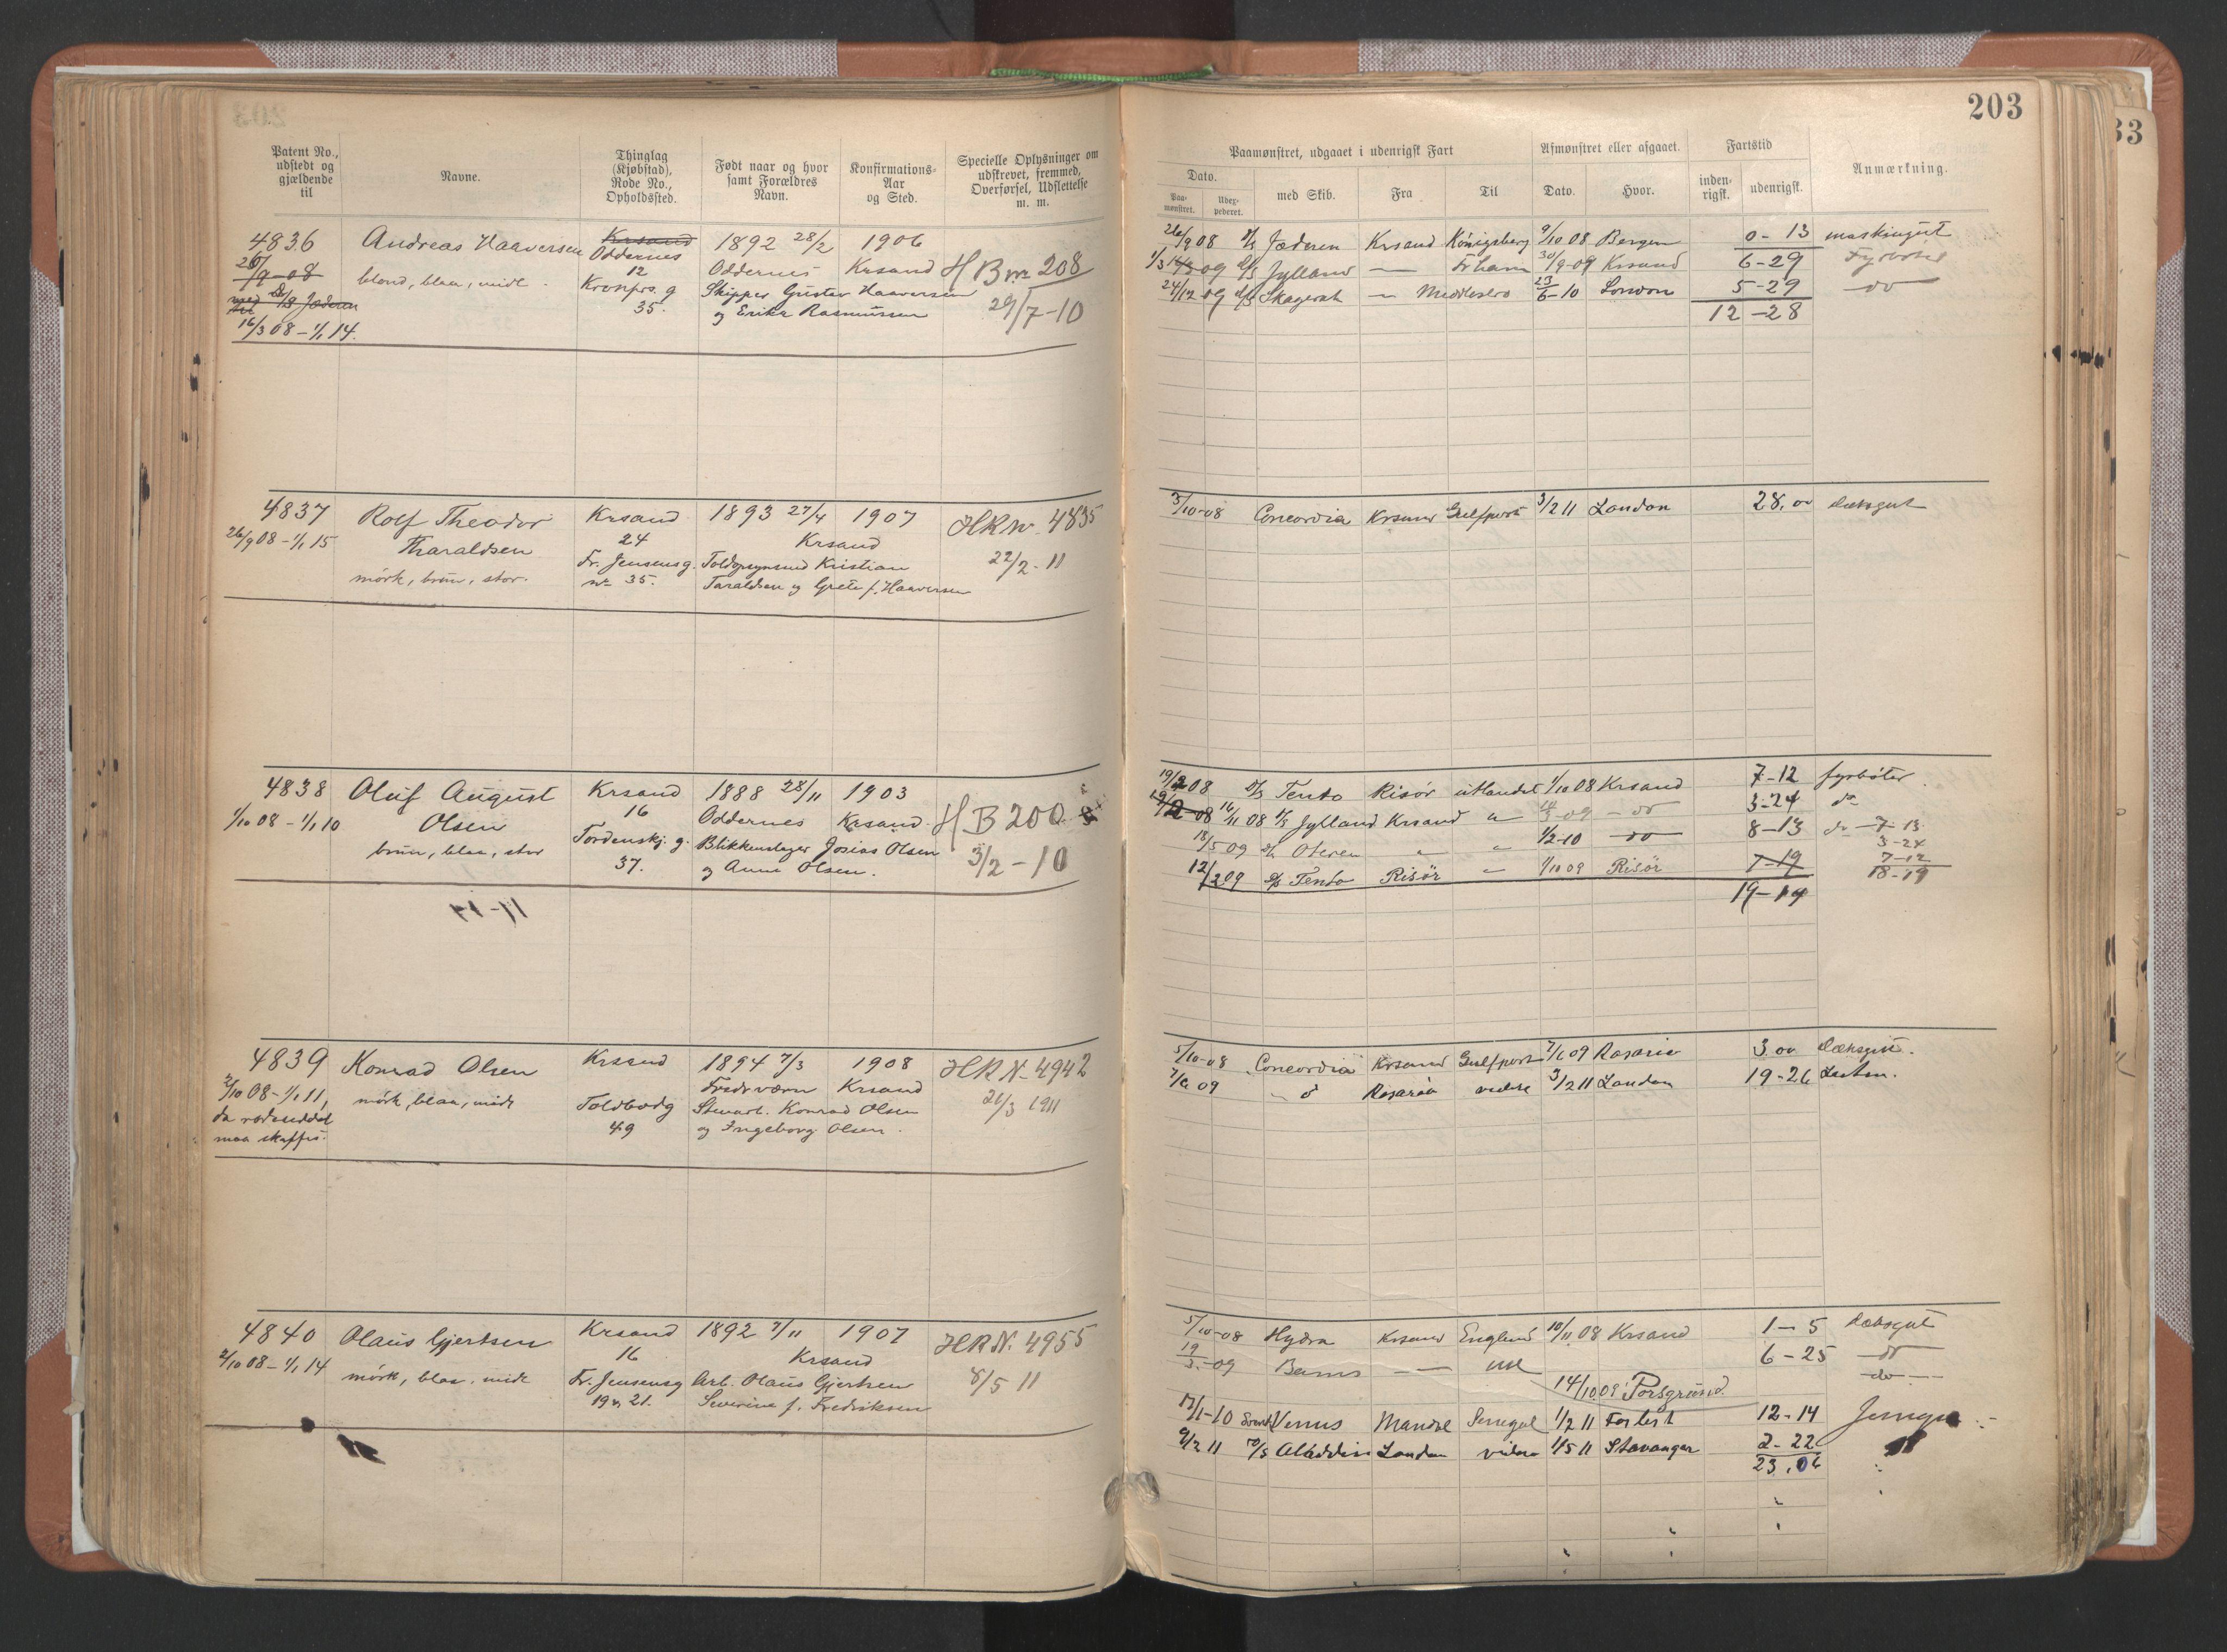 203
Patent No., udstedt og gjældende til
Navne.
Thinglag (Kjøbstad), Rode No., Opholdssted.
Født naar og hvor samt Forældres Navn.
Konfirmations-Aar og Sted.
Specielle Oplysninger om udskrevet, fremmed, Overførsel, Udslettelse m. m.
Paamønstret, udgaaet i udenrigsk Fart
Afmønstret eller afgaaet.
Fartstid
Anmærkning.
Dato.
Paamønstret.
Udexpederet.
med Skib.
Fra
Til
Dato.
Hvor.
indenrigsk.
udenrigsk.
4836 Andreas Haaversen Krsand 1892 28/2 1906
Oddernes
26/9-08 blond, blaa, midl. 12 Oddernes Krsand H B nr 208
D/S Jæderen Kronprs. g Skipper Gustav Haaversen
16/3 08 – 1/1 14. 35. og Erika Rasmussen 29/7-10
26/9 08 D/S Jæderen Krsand Königsberg 9/10 08 Bergen 0-13 maskingut
09 D/S Jylland — Frhavn 30/9-09 Krsand 6-29 Fyrbøter
24/12 09 D/S Skagerak — Middlesbro 23/6-10 London 5-29 do
12-28
4837 Rolf Theodor Krsand 1893 27/4 1907 HR nr. 4835
26/9 08 – 1/1 15 Tharaldsen 24 Krsand
mörk, brun, stor. Fr. Jensens g. Toldopsynsmd Kristian 22/2-11
nr 35. Taraldsen og Grete f. Haaversen
3/10-08 Concordia Krsand Gulfport 3/2 11 London 28, 00 dæksgut
4838 Oluf August Krsand 1888 28/11 1903
1/10 08 – 1/1 10 Olsen 16 Oddernes Krsand. H B 200
brun, blaa, stor Tordenskj. g. Blikkenslager Josias Olsen 3/2-10
37. og Anne Olsen.
19/2 08 D/S Tento Risör utlandet 1/10 08 Krsand 7-12 fyrbøter
16/11 08 D/S Jylland Krsand " 3-09 do 3-24 do
18/5 09 Oteren " " 1/2-10 do 8-13 do 7-13
3-24
12/2 09 D/S Tento Risör " 1/10 09 Risör 7-19 7-12
18-19
19-14
4839 Konrad Olsen Krsand 1894 7/3 1908 HR N. 4942
2/10 08 – 1/1 11, mörk, blaa, midl Fredrværn Krsand
da rodeseddel Toldbodg Stuart. Konrad Olsen 21/3 1911
maa skaffes. 49 og Ingeborg Olsen.
5/10-08 Concordia Krsand Gulfport 09 Rosario 3 00 Dæksgut.
09 do Rosario videre 3/2 11 London 19-26
4840 Olaus Gjertsen Krsand 1892 7/11 1907 HR N. 4955
2/10 08 – 1/1 14 16 Krsand
mörk, blaa. midl Fr. Jensensg Arb. Olaus Gjertsen 8/5 11
21. Severine f. Fredriksen
5/10-08 Hydra Krsand England 10/11 08 Krsand 1-5 Dæksgut
19/3-09 — 6-25 do
14/10 09 Porsgrund. do
17/1-10 Venus Mandal Senegal 1/2 11 12-14
9/2 11 D/S Aladdin London videre 1/5 11 Stavanger 2-22
23,06